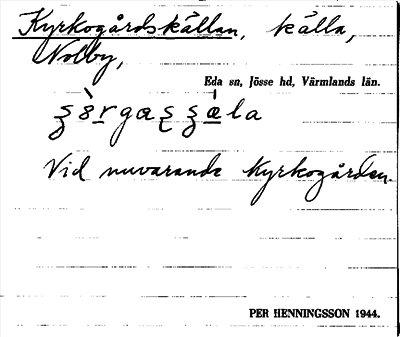 Kyrkogårdskällan, källa,
Nolby,
Eda sn, Jösse hd, Värmlands län.
Vid nuvarande Kyrkogården.
PER HENNINGSSON 1944.